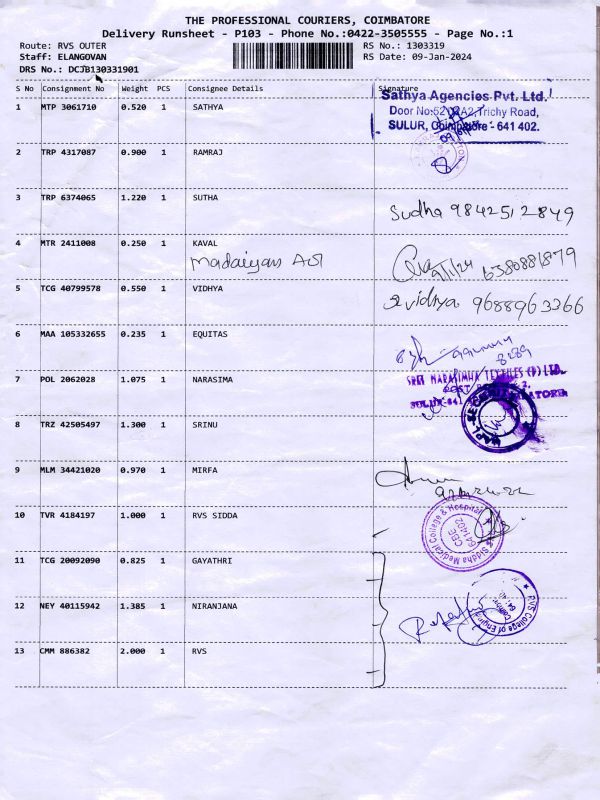 THE PROFESSIONAL COURIERS, COIMBATORE
Delivery Runsheet - P103 - Phone No.:0422-3505555 - Page No.:1
Route: RVS OUTER
RS No.: 1303319
Staff: ELANGOVAN
RS Date: 09-Jan-2024
DRS No.: DCJB130331901
S No Consignment No Weight PCS Consignee Details Signature
1 MTP 3061710 0.520 1 SATHYA
Sathya Agencies Pvt. Ltd.
Trichy Road,
SULUR, Coimbatore - 641 402.
2 TRP 4317087 0.900 1 RAMRAJ
3 TRP 6374065 1.220 1 SUTHA
Sudha 9842512849
4 MTR 2411008 0.250 1 KAVAL
Madaiyan
9/1/24 6380881879
5 TCG 40799578 0.550 1 VIDHYA
Srividhya 9688963366
6 MAA 105332655 0.235 1 EQUITAS
7 POL 2062028 1.075 1 NARASIMA
SRI NARASIMHA TEXTILES (P) LTD.
8 TRZ 42505497 1.300 1 SRINU
9 MLM 34421020 0.970 1 MIRFA
10 TVR 4184197 1.000 1 RVS SIDDA
Siddha Medical College & Hospital
CBE
641402
11 TCG 20092090 0.825 1 GAYATHRI
12 NEY 40115942 1.385 1 NIRANJANA
RVS College of
13 CMM 886382 2.000 1 RVS